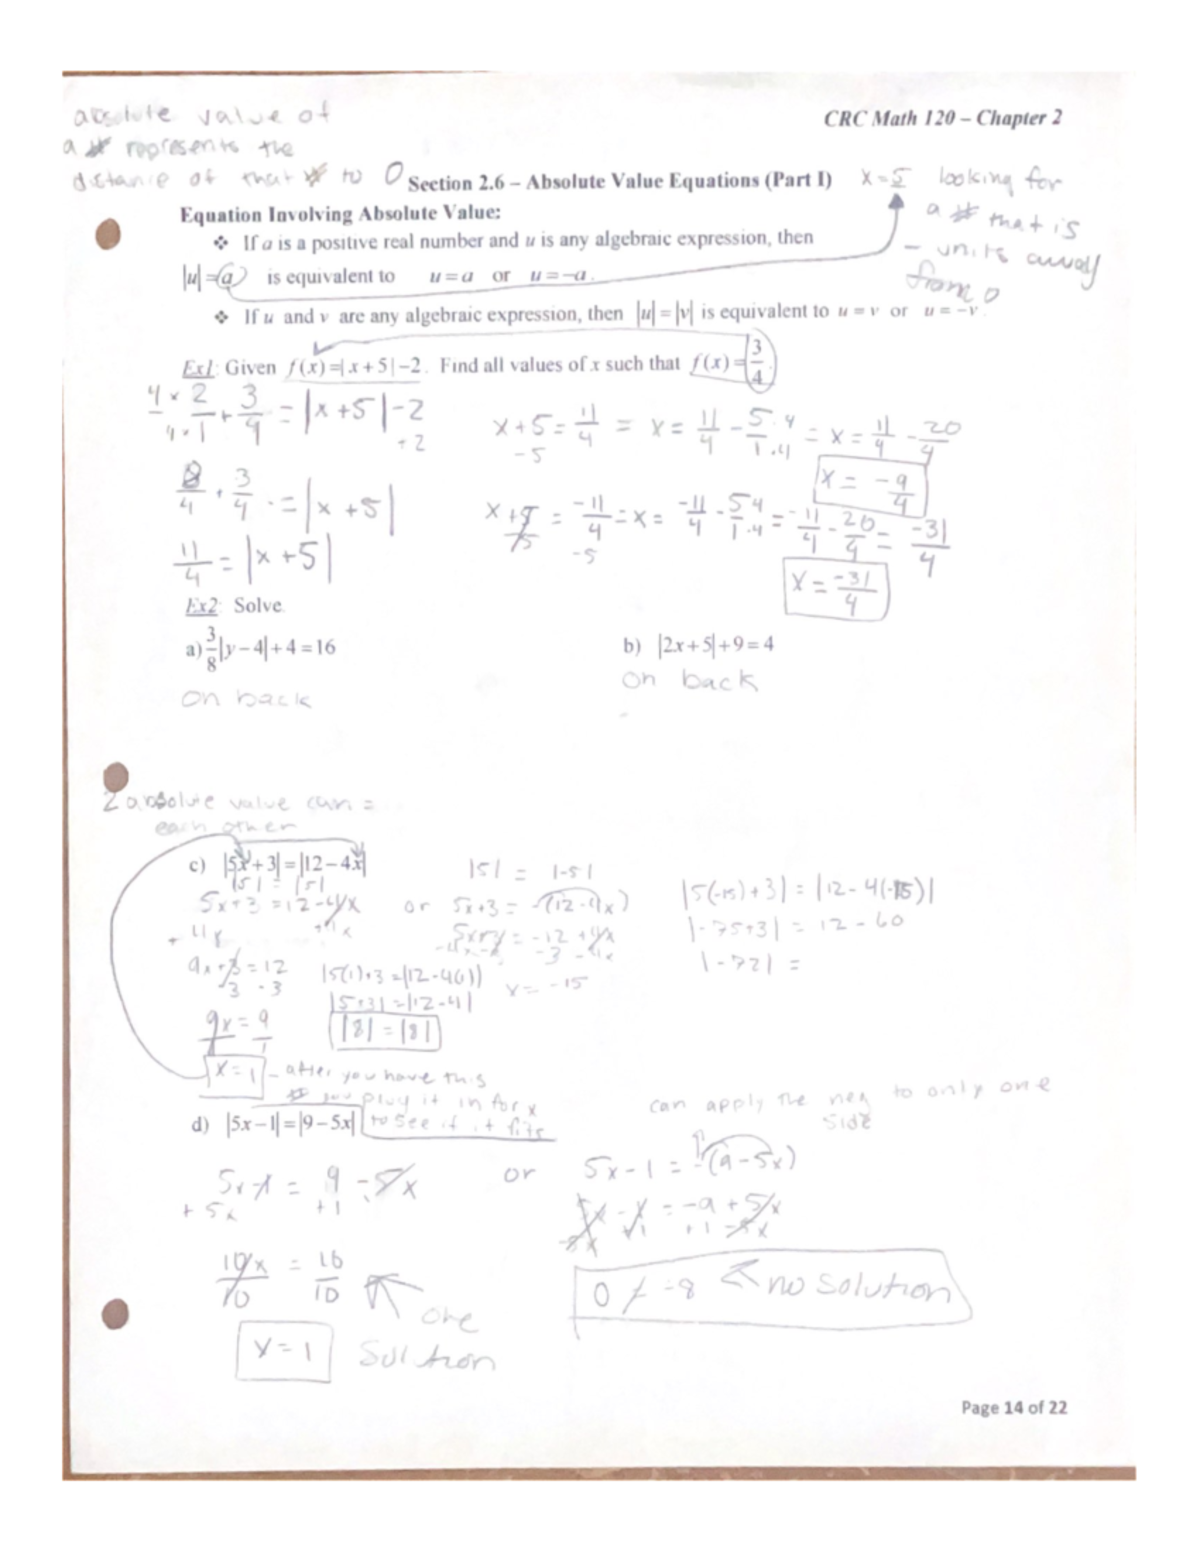 absolute value of
a # represents the
distance of that # to 0
CRC Math 120 – Chapter 2
Section 2.6 – Absolute Value Equations (Part I)
x=5 looking for
a # that is
– units away
from 0
Equation Involving Absolute Value:
❖ If a is a positive real number and u is any algebraic expression, then
|u|=a is equivalent to u=a or u=-a.
❖ If u and v are any algebraic expression, then |u|=|v| is equivalent to u=v or u=-v.
Ex1: Given f(x)=|x+5|-2. Find all values of x such that f(x)=3/4
4 × 2/4 × 1 + 3/4 = |x+5|-2
+2
8/4 + 3/4 = |x+5|
11/4 = |x+5|
x+5 = 11/4 = x = 11/4 - 5·4/1·4 = x = 11/4 - 20/4
-5
x = -9/4
x+5 = -11/4 = x = -11/4 - 5·4/1·4 = -11/4 - 20/4 = -31/4
-5 -5
x = -31/4
Ex2: Solve.
a) 3/8|y-4|+4=16
b) |2x+5|+9=4
on back
on back
2 absolute value can =
each other
c) |5x+3|=|12-4x|
|5| = |5|
|5| = |-5|
5x+3 = 12-4x or 5x+3 = -(12-4x)
+4x +4x
9x+3 = 12
-3 -3
9x = 9
x = 1
5x+3 = -12+4x
-4x-3 -3 -4x
x = -15
|5(1)+3 = |12-4(1)|
|5+3| = |12-4|
|8| = |8|
|5(-15)+3| = |12-4(-15)|
|-75+3| = 12-60
|-72| =
– after you have this
# you plug it in for x
to see if it fits
d) |5x-1|=|9-5x|
can apply the neg to only one
side
5x-1 = 9-5x or 5x-1 = -(9-5x)
+5x +1
5x-1 = -9+5x
-5x +1 +1 -5x
10x/10 = 10/10
one
solution
x=1
0 ≠ -8 no solution
Page 14 of 22